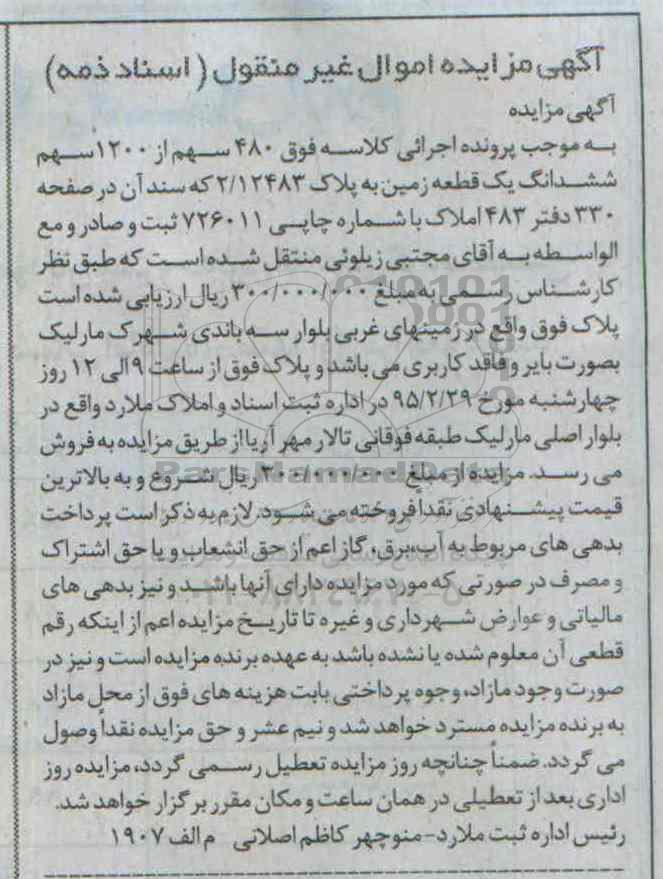 آگهی مزایده اموال غیر منقول (اسناد ذمه)
آگهی مزایده
به موجب پرونده اجرائی کلاسه فوق ۴۸۰ سهم از ۱۲۰۰ سهم
ششدانگ یک قطعه زمین به پلاک ۲/۱۲۴۸۳ که سند آن در صفحه
۳۳۰ دفتر ۴۸۳ املاک با شماره چاپی ۷۲۶۰۱۱ ثبت و صادر و مع
الواسطه به آقای مجتبی زیلوئی منتقل شده است که طبق نظر
کارشناس رسمی به مبلغ ۳۰۰/۰۰۰/۰۰۰ ریال ارزیابی شده است
پلاک فوق واقع در زمینهای غربی بلوار سه باندی شهرک مارلیک
بصورت بایر و فاقد کاربری می باشد و پلاک فوق از ساعت ۹ الی ۱۲ روز
چهارشنبه مورخ ۹۵/۲/۲۹ در اداره ثبت اسناد و املاک ملارد واقع در
بلوار اصلی مارلیک طبقه فوقانی تالار مهر آریا از طریق مزایده به فروش
می رسد. مزایده از مبلغ ۳۰۰/۰۰۰/۰۰۰ ریال شروع و به بالاترین
قیمت پیشنهادی نقداً فروخته می شود. لازم به ذکر است پرداخت
بدهی های مربوط به آب، برق، گاز اعم از حق انشعاب و یا حق اشتراک
و مصرف در صورتی که مورد مزایده دارای آنها باشد و نیز بدهی های
مالیاتی و عوارض شهرداری و غیره تا تاریخ مزایده اعم از اینکه رقم
قطعی آن معلوم شده یا نشده باشد به عهده برنده مزایده است و نیز در
صورت وجود مازاد، وجوه پرداختی بابت هزینه های فوق از محل مازاد
به برنده مزایده مسترد خواهد شد و نیم عشر و حق مزایده نقداً وصول
می گردد. ضمناً چنانچه روز مزایده تعطیل رسمی گردد، مزایده روز
اداری بعد از تعطیلی در همان ساعت و مکان مقرر برگزار خواهد شد.
رئیس اداره ثبت ملارد-منوچهر کاظم اصلانی م الف ۱۹۰۷
ParsNamadData